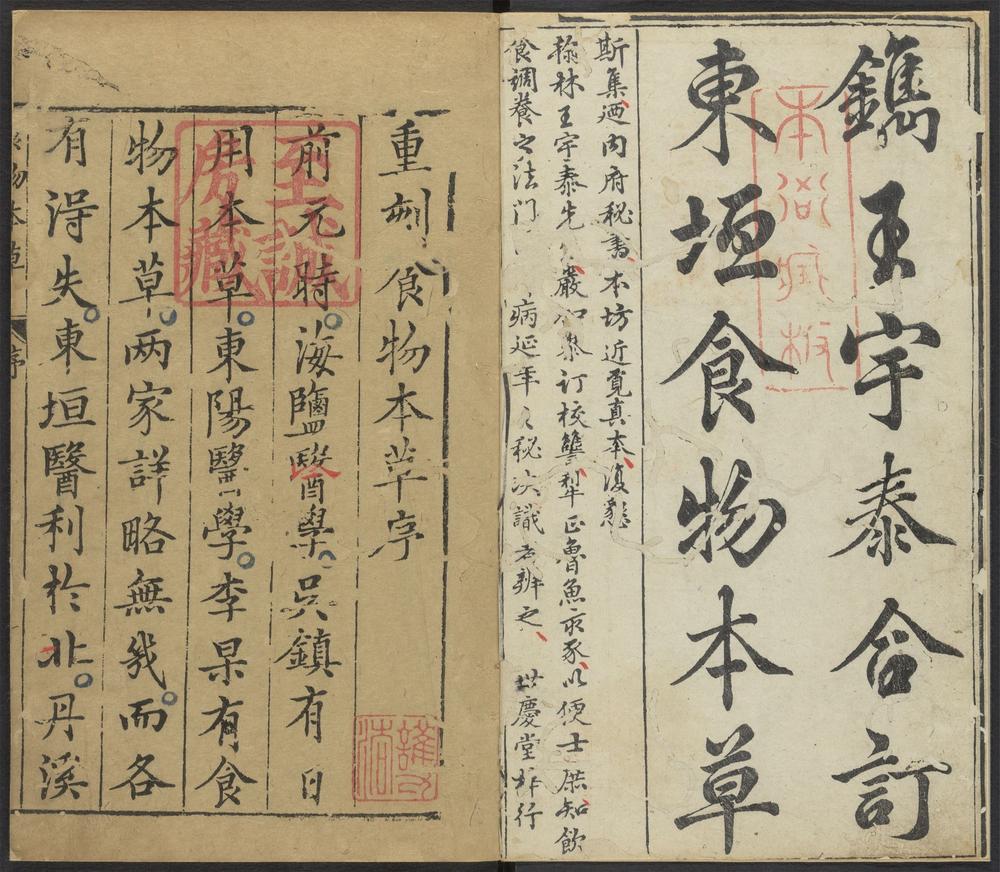 鐫王宇泰合訂
東垣食物本草
斯集迺內府秘書本坊近覓真本復懇
翰林王宇泰先 嚴加參訂校讐犂正魯魚亥豕以便士庶知飲
食調養之法門 病延年 秘決識者辨之 世慶堂梓行
本衙藏板
重刻食物本草序
前元時海鹽醫學吳鎮有日
用本草東陽醫學李杲有食
物本草两家詳略無幾而各
有得失東垣醫利於北丹溪
食物本草 序